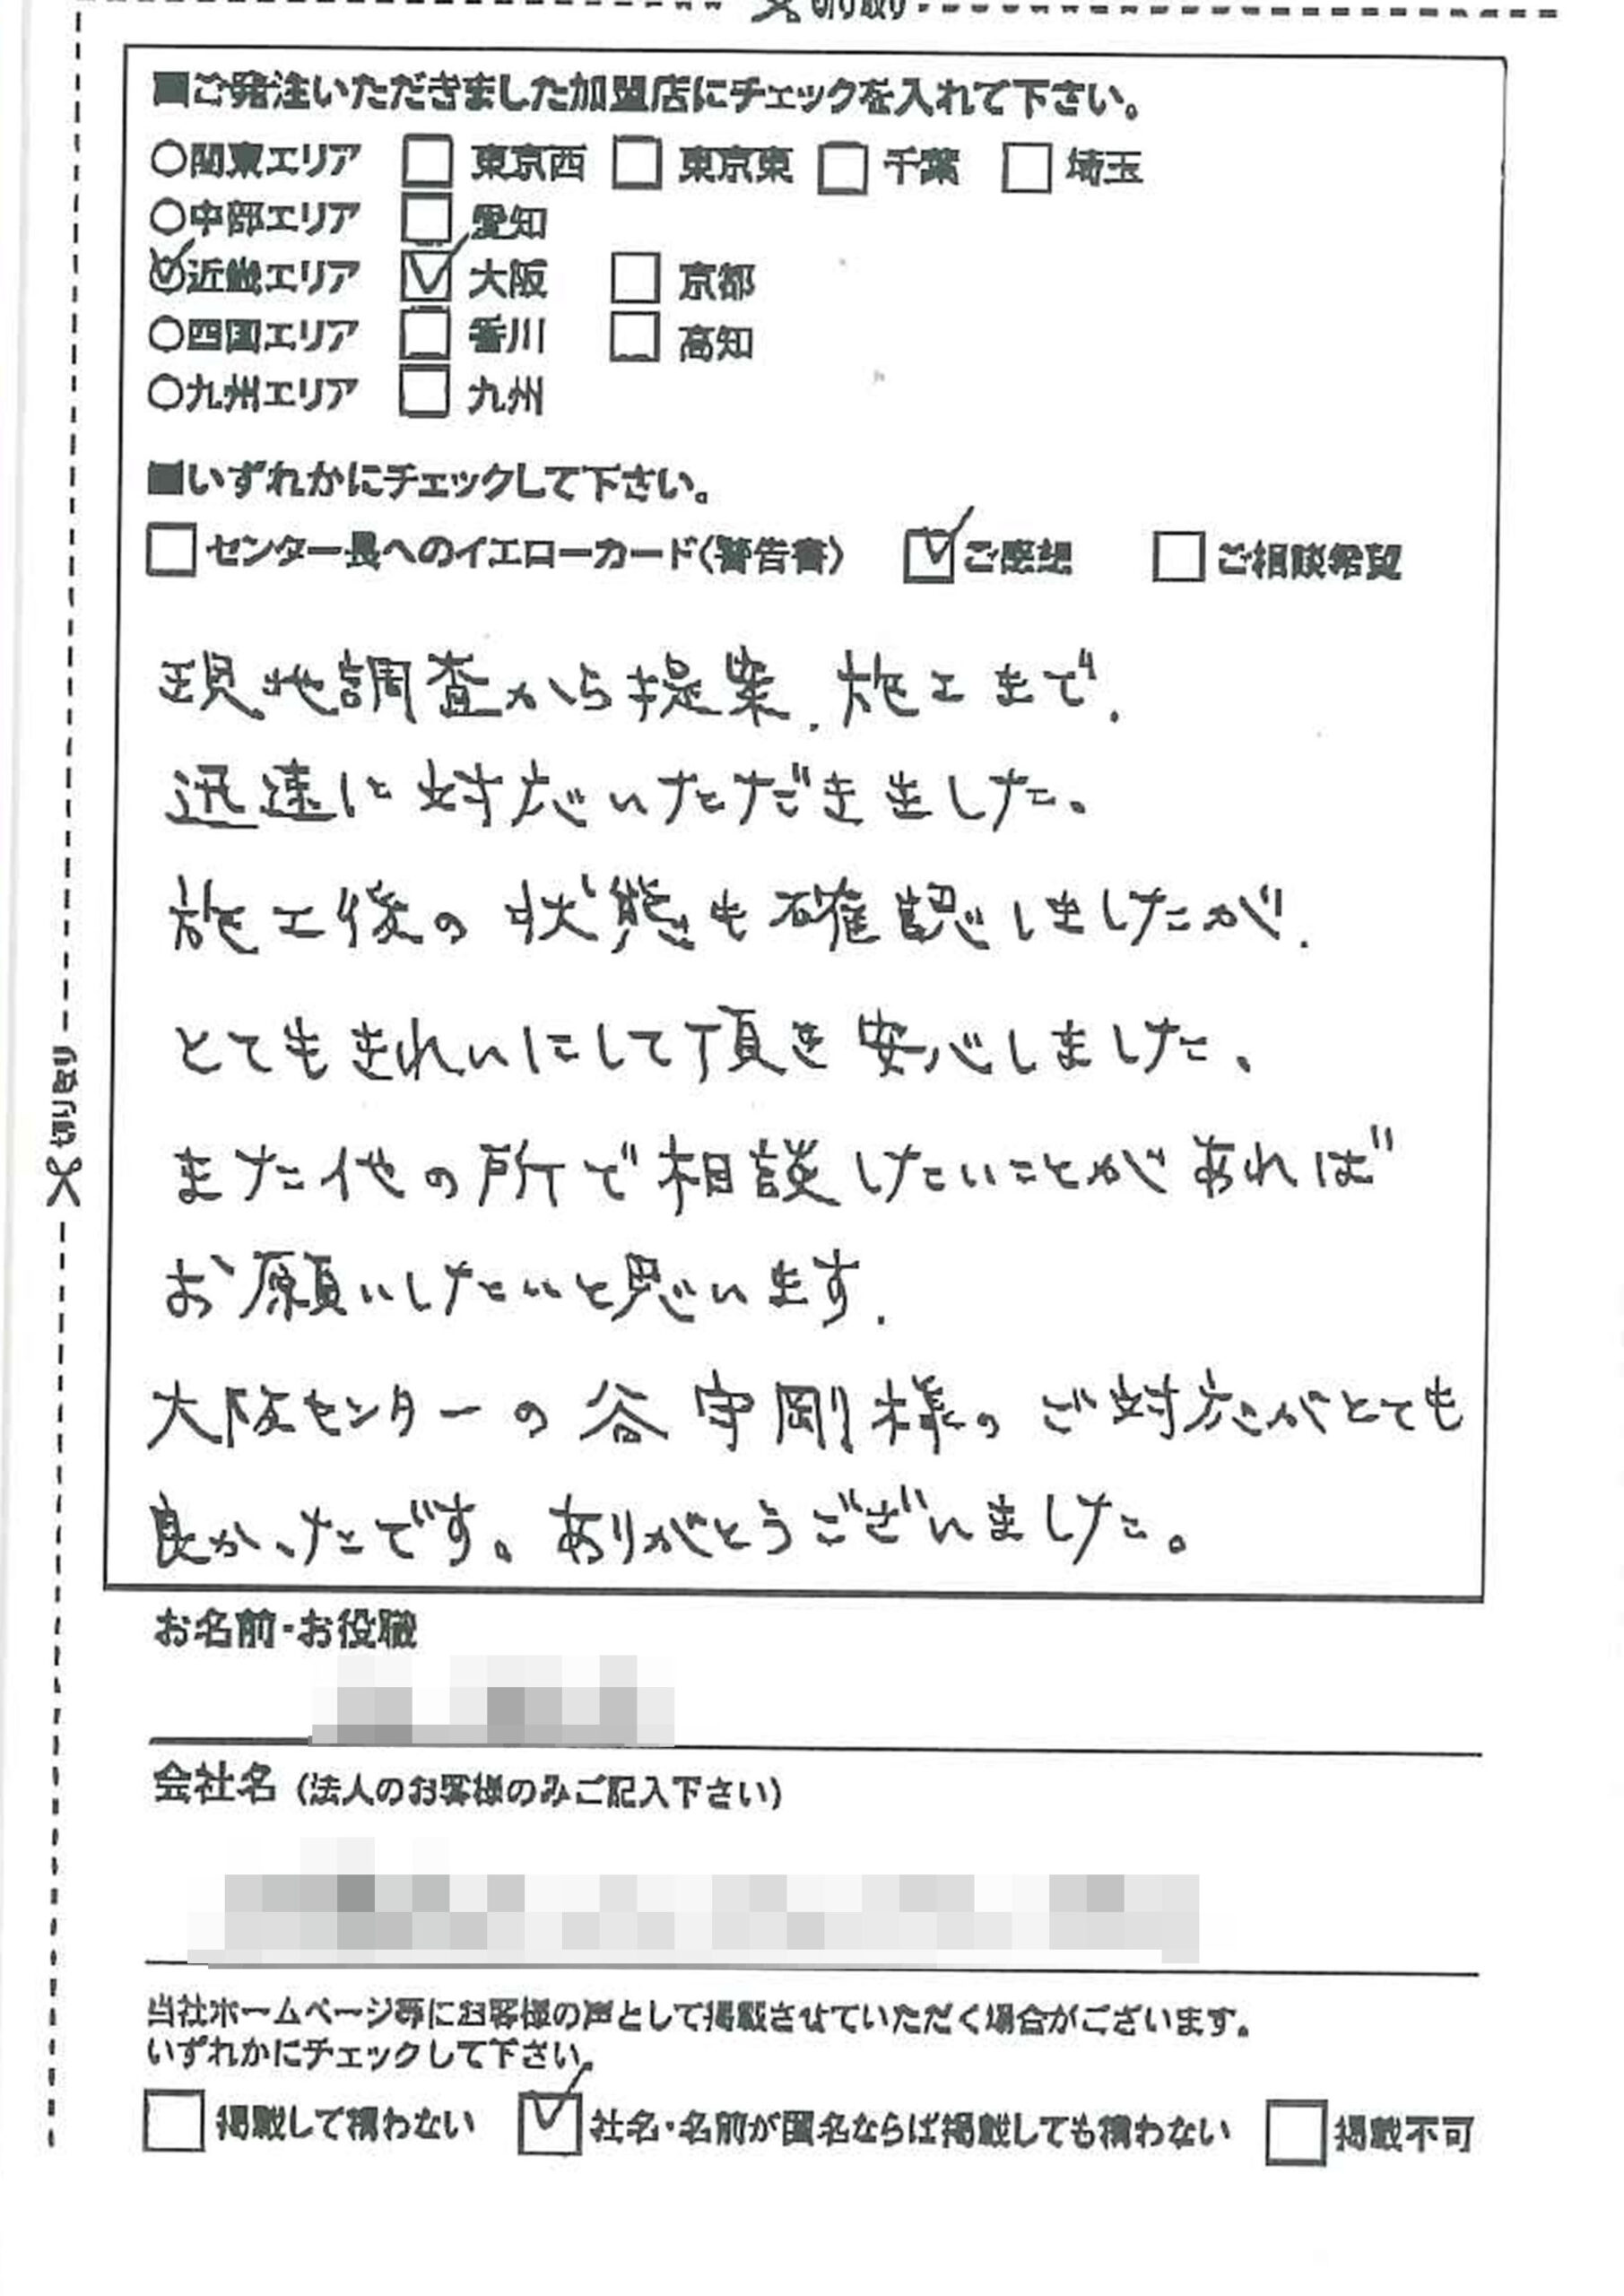 切り取り
■ご発注いただきました加盟店にチェックを入れて下さい。
○関東エリア □ 東京西 □ 東京東 □ 千葉 □ 埼玉
○中部エリア □ 愛知
○近畿エリア ☑ 大阪 □ 京都
○四国エリア □ 香川 □ 高知
○九州エリア □ 九州
■いずれかにチェックして下さい。
□センター長へのイエローカード(警告書) ☑ご感想 □ご相談希望
現地調査から提案、施工まで、
迅速に対応いただきました。
施工後の状態も確認しましたが、
とてもきれいにして頂き安心しました。
また他の所で相談したいことがあれば
お願いしたいと思います。
大阪センターの谷 守剛様のご対応がとても
良かったです。ありがとうございました。
切り取り
お名前・お役職
会社名(法人のお客様のみご記入下さい)
当社ホームページ等にお客様の声として掲載させていただく場合がございます。
いずれかにチェックして下さい。
□掲載して構わない ☑社名・名前が匿名ならば掲載しても構わない □掲載不可